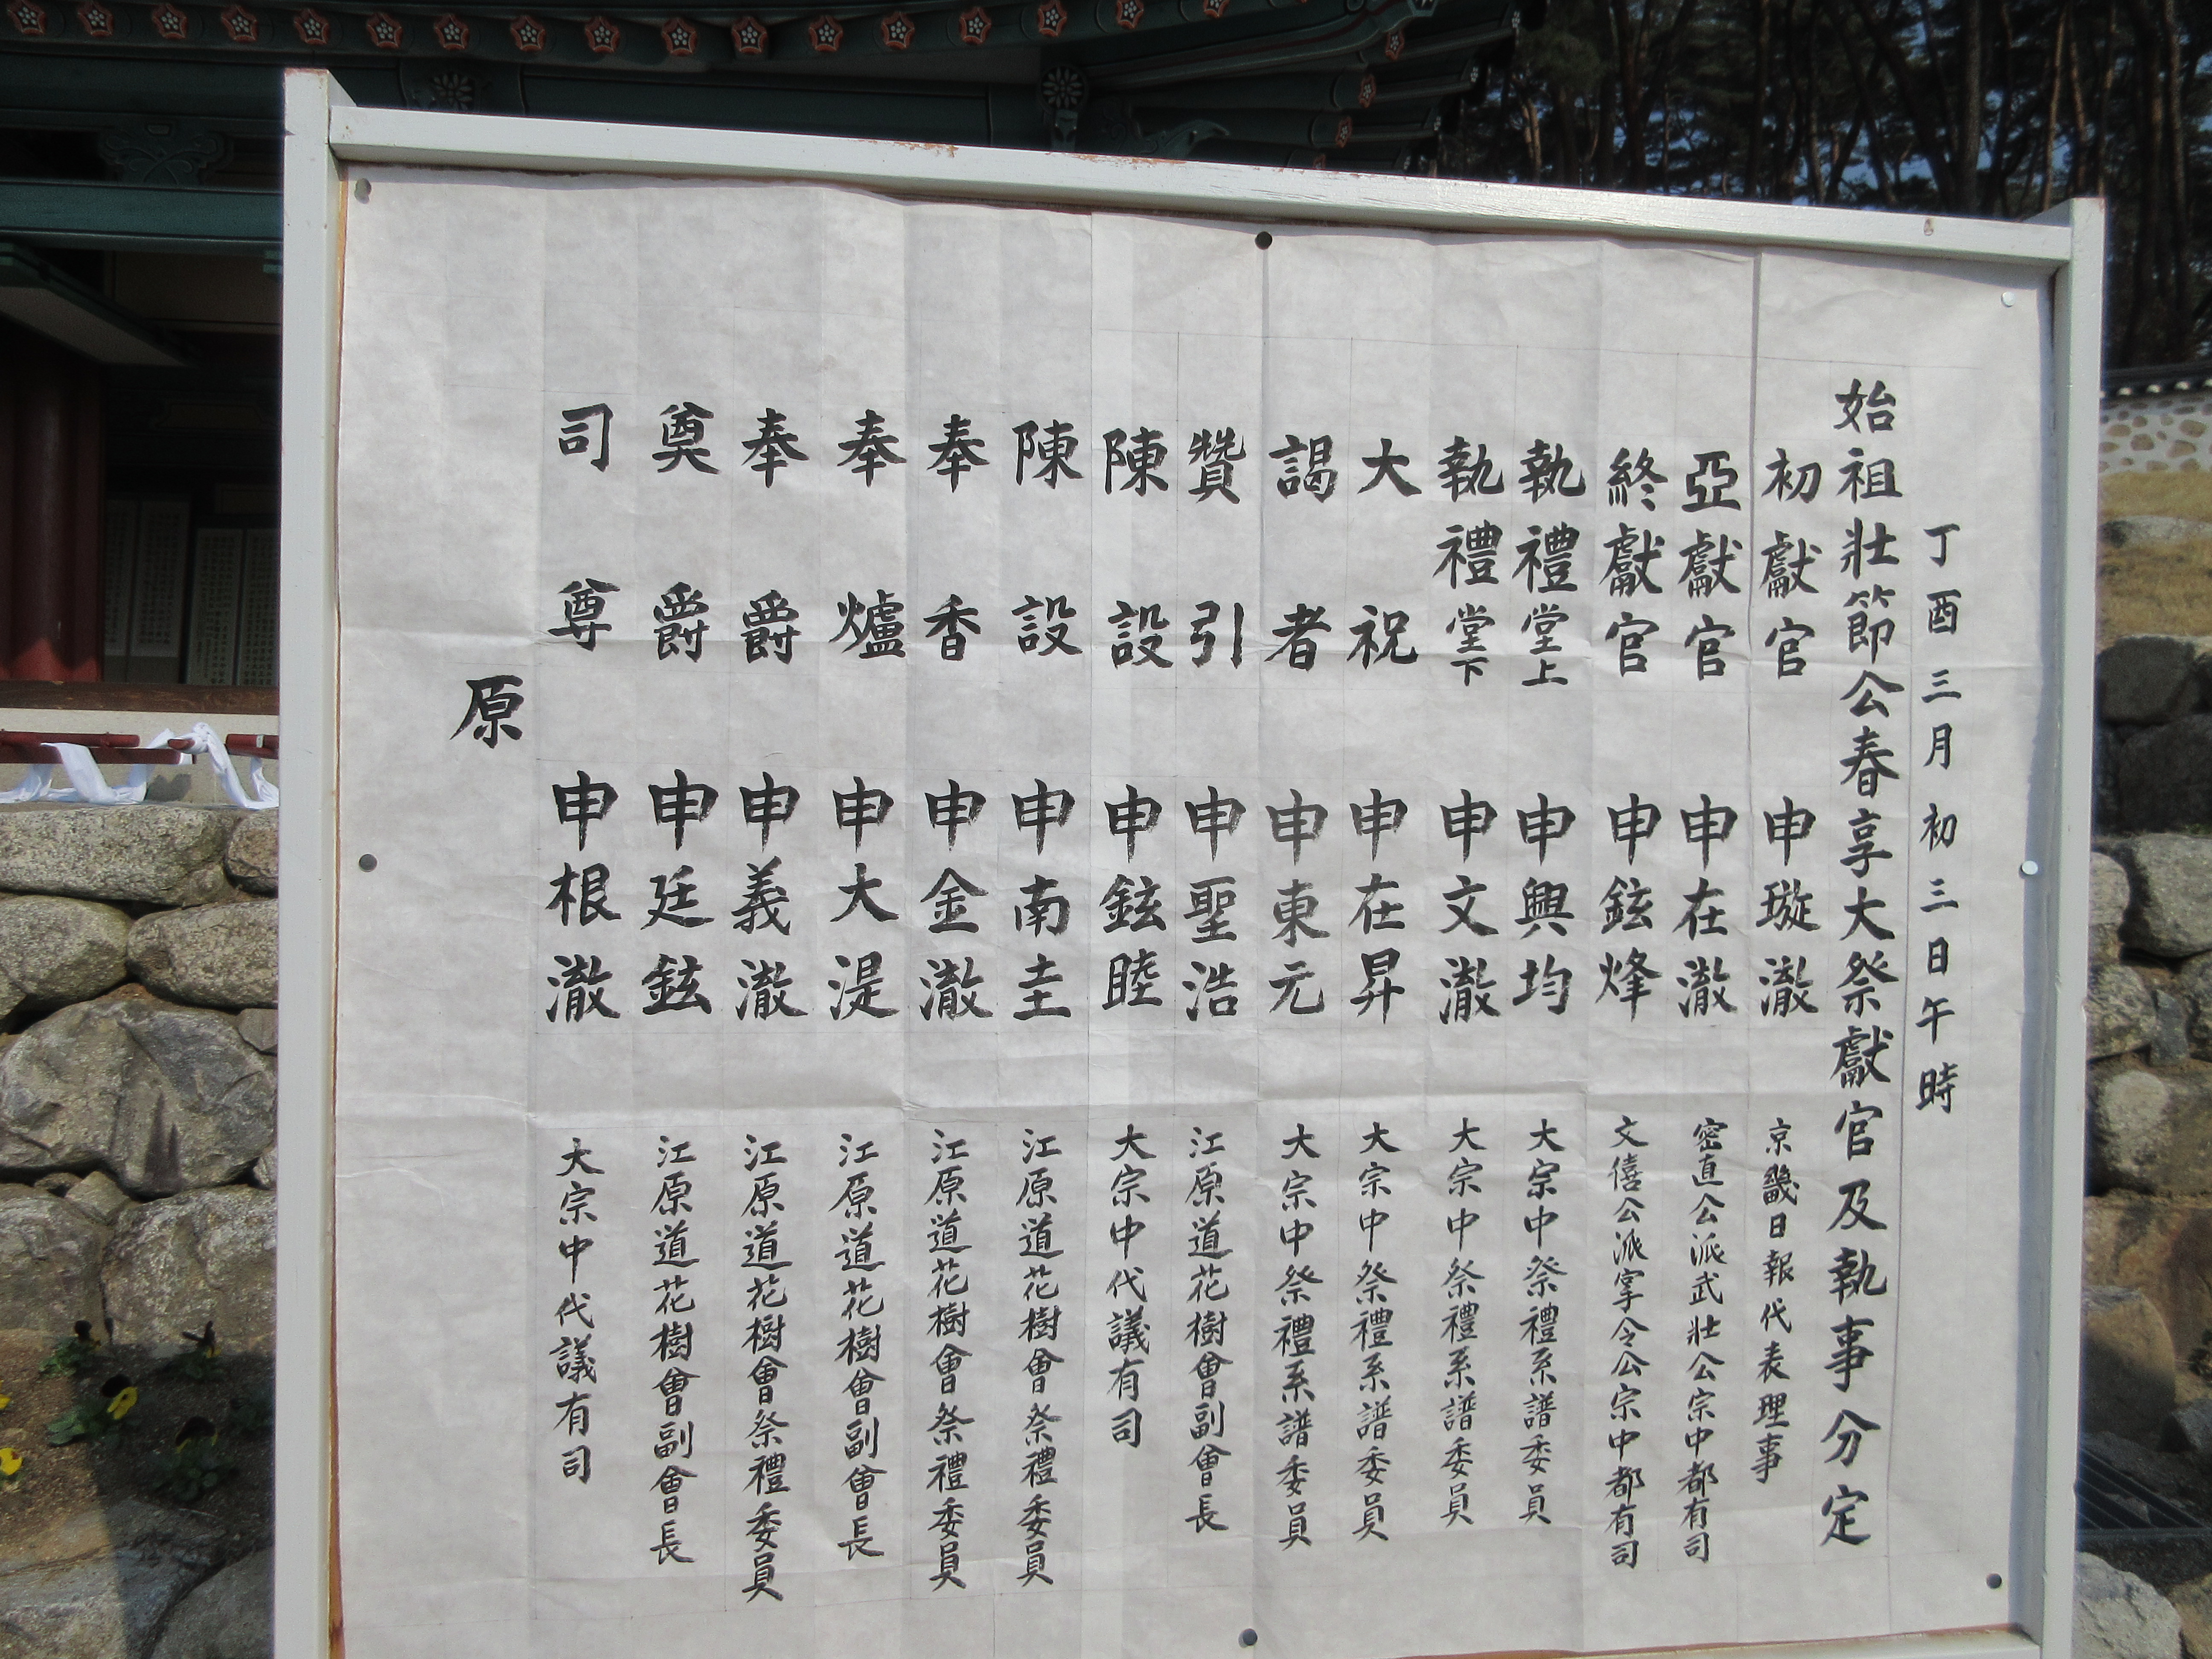 丁酉三月初三日午時
始祖壯節公春享大祭獻官及執事分定
初獻官 申璇澈 京畿日報代表理事
亞獻官 申在澈 密直公派武壯公宗中都有司
終獻官 申鉉烽 文僖公派掌令公宗中都有司
執禮堂上 申興均 大宗中祭禮系譜委員
執禮堂下 申文澈 大宗中祭禮系譜委員
大祝 申在昇 大宗中祭禮系譜委員
謁者 申東元 大宗中祭禮系譜委員
贊引 申聖浩 江原道花樹會副會長
陳設 申鉉睦 大宗中代議有司
陳設 申南圭 江原道花樹會祭禮委員
奉香 申金澈 江原道花樹會祭禮委員
奉爐 申大湜 江原道花樹會副會長
奉爵 申義澈 江原道花樹會祭禮委員
奠爵 申廷鉉 江原道花樹會副會長
司尊 申根澈 大宗中代議有司
原